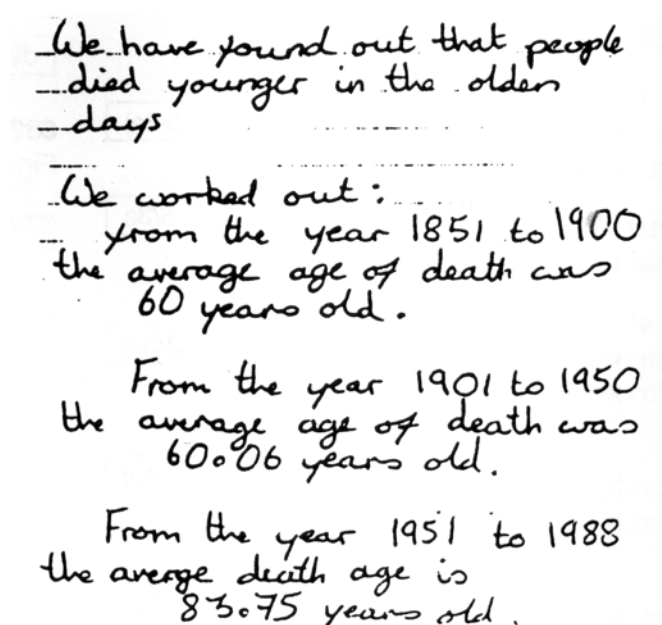 We have found out that people
died younger in the olden
days
We worked out:
from the year 1851 to 1900
the average age of death was
60 years old.
From the year 1901 to 1950
the average age of death was
60.06 years old.
From the year 1951 to 1988
the averge death age is
83.75 years old.